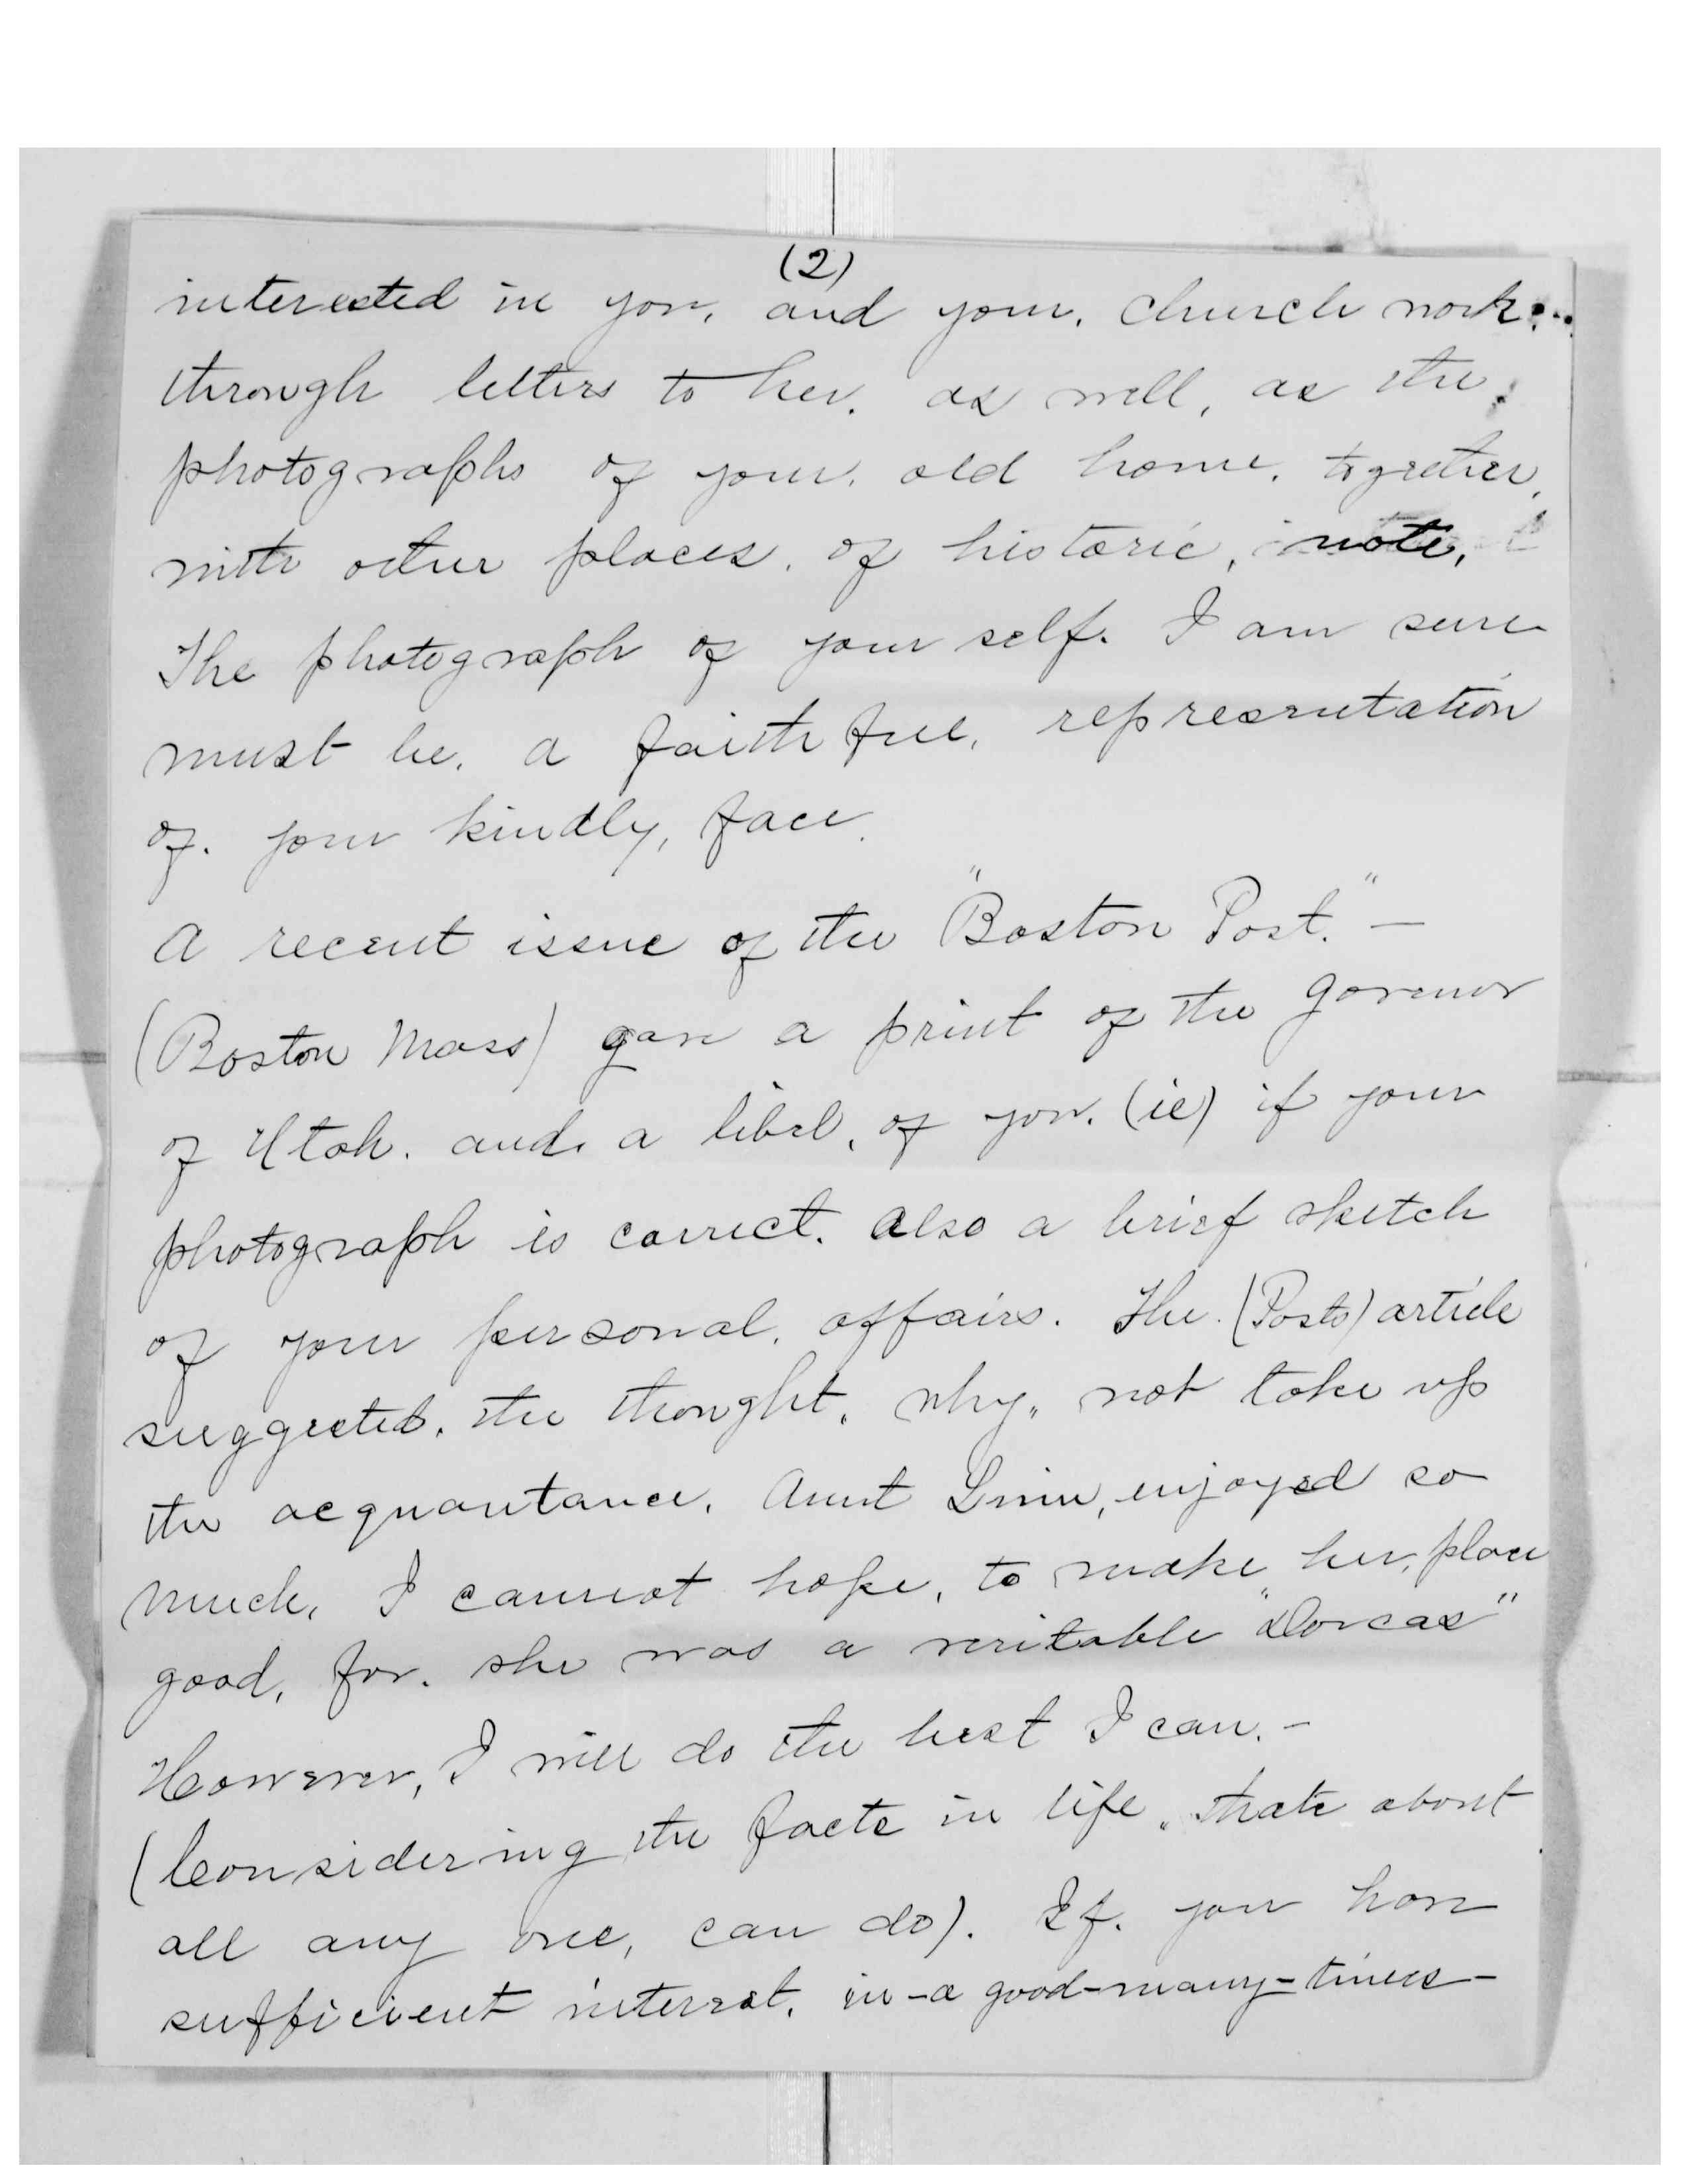 (2)
interested in you, and your, church work...
through letters to her. as well, as the,
photographs of your, old home, together,
with other places, of historic, note,
The photograph of your self. I am sure
must be, a faithful, representation
of. your kindly, face.
A recent issue of the "Boston Post." —
(Boston Mass) gave a print of the Governor
of Utah. and, a libel, of you. (ie) if your
photograph is correct. also a brief sketch
of your personal, affairs. The. (Posts) article
suggested, the thought, why, not take up
the acquantance, Aunt enjoyed so
much, I cannot hope, to make her, place
good, for. she was a veritable "Dorcas"
However, I will do the best I can. –
(Considering the facts in life, thats about
all any one, can do). If. you have
sufficient interest, in – a good – many – times –